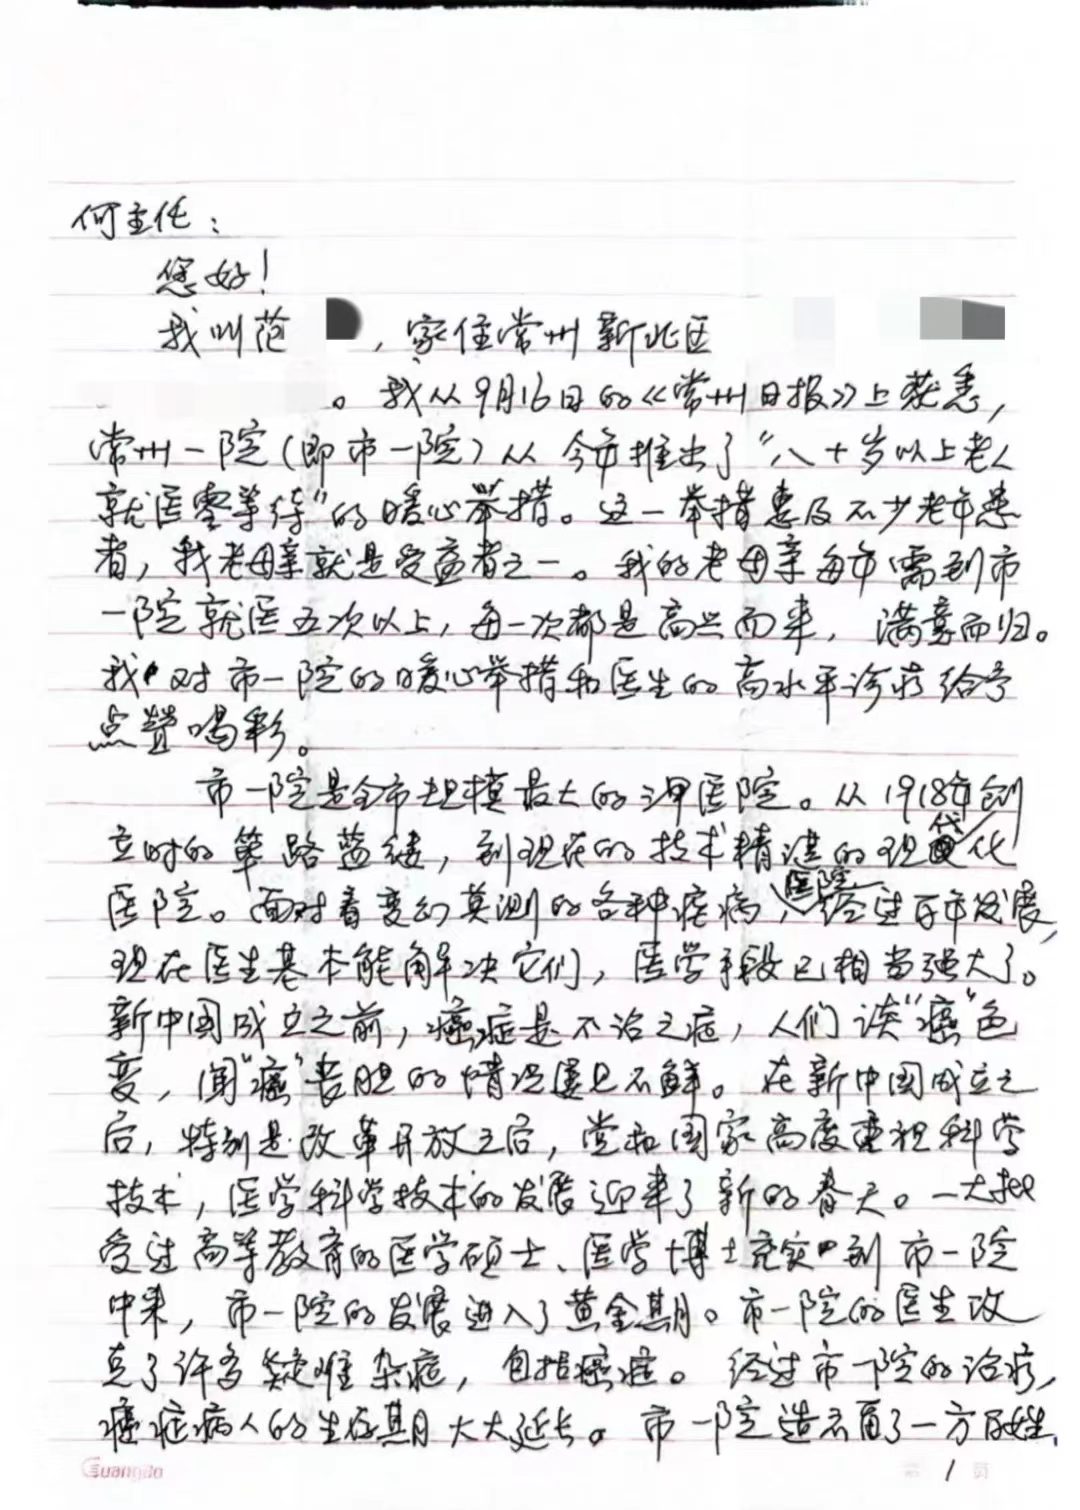 何主任：
您好！
我叫范 ，家住常州新北区
。我从9月16日的《常州日报》上获悉，
常州一院（即市一院）从今年推出了“八十岁以上老人
就医零等待”的暖心举措。这一举措惠及不少老年患
者，我老母亲就是受益者之一。我的老母亲每年需到市
一院就医五次以上，每一次都是高兴而来，满意而归。
我对市一院的暖心举措和医生的高水平诊疗给予
点赞喝彩。
市一院是全市规模最大的三甲医院。从1918年创
立时的筚路蓝缕，到现在的技术精湛的现代化
医院。面对着变幻莫测的各种疾病，医院经过百年发展，
现在医生基本能解决它们，医学手段已相当强大了。
新中国成立之前，癌症是不治之症，人们谈“癌”色
变，闻“癌”丧胆的情况屡见不鲜。在新中国成立之
后，特别是改革开放之后，党和国家高度重视科学
技术，医学科学技术的发展迎来了新的春天。一大批
受过高等教育的医学硕士、医学博士充实到市一院
中来，市一院的发展进入了黄金期。市一院的医生攻
克了许多疑难杂症，包括癌症。经过市一院的治疗，
癌症病人的生存期大大延长。市一院造福了一方百姓，
Guangbo
第 1 页